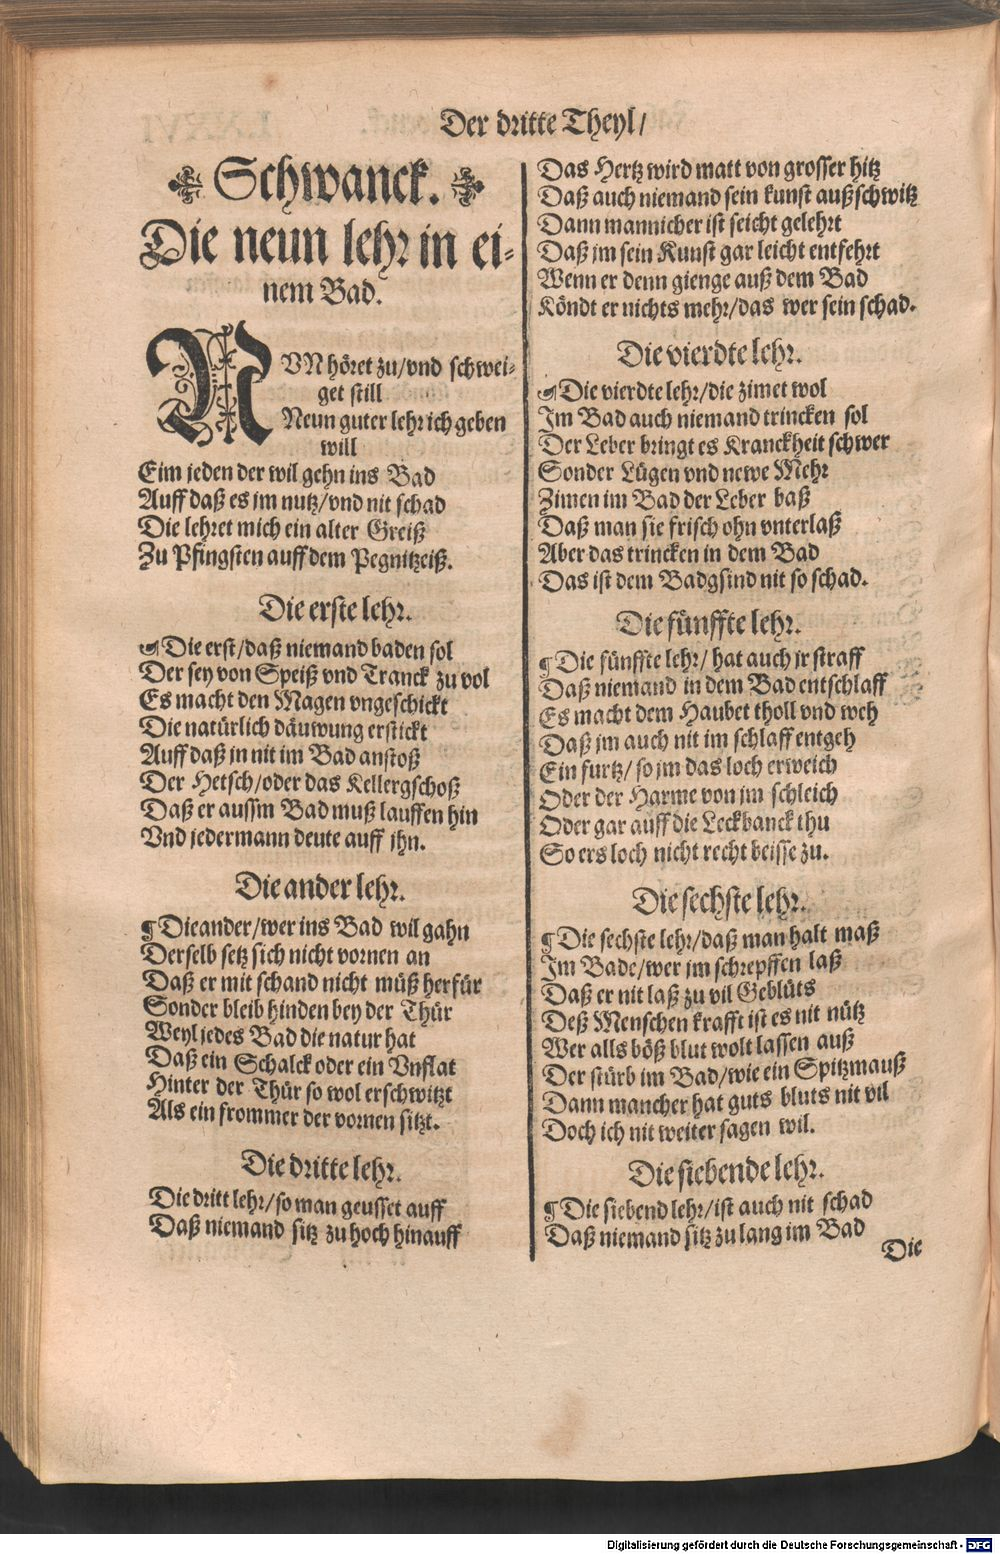 Der dritte Theyl/
Schwanck.
Die neun lehr in ei-
nem Bad.
NVN höret zu/vnd schwei-
get still
Neun guter lehr ich geben
will
Eim jeden der wil gehn ins Bad
Auff daß es jm nutz/vnd nit schad
Die lehret mich ein alter Greiß
Zu Pfingsten auff dem Pegnitzeiß.
Die erste lehr.
Die erst/daß niemand baden sol
Der sey von Speiß vnd Tranck zu vol
Es macht den Magen vngeschickt
Die natürlich däuwung erstickt
Auff daß jn nit im Bad anstoß
Der Hetsch/oder das Kellergschoß
Daß er aussm Bad muß lauffen hin
Vnd jedermann deute auff jhn.
Die ander lehr.
¶ Die ander/wer ins Bad wil gahn
Derselb setz sich nicht vornen an
Daß er mit schand nicht müß herfür
Sonder bleib hinden bey der Thür
Weyl jedes Bad die natur hat
Daß ein Schalck oder ein Vnflat
Hinter der Thür so wol erschwitzt
Als ein frommer der vornen sitzt.
Die dritte lehr.
Die dritt lehr/so man geusset auff
Daß niemand sitz zu hoch hinauff
Das Hertz wird matt von grosser hitz
Daß auch niemand sein kunst außschwitz
Dann mannicher ist seicht gelehrt
Daß jm sein Kunst gar leicht entfehrt
Wenn er denn gienge auß dem Bad
Köndt er nichts mehr/das wer sein schad.
Die vierdte lehr.
Die vierdte lehr/die zimet wol
Im Bad auch niemand trincken sol
Der Leber bringt es Kranckheit schwer
Sonder Lügen vnd newe Mehr
Zimen im Bad der Leber baß
Daß man sie frisch ohn vnterlaß
Aber das trincken in dem Bad
Das ist dem Badgsind nit so schad.
Die fünffte lehr.
¶ Die fünffte lehr/ hat auch jr straff
Daß niemand in dem Bad entschlaff
Es macht dem Haubet tholl vnd weh
Daß jm auch nit im schlaff entgeh
Ein furtz/ so jm das loch erweich
Oder der Harme von jm schleich
Oder gar auff die Leckbanck thu
So ers loch nicht recht beisse zu.
Die sechste lehr.
¶ Die sechste lehr/daß man halt maß
Im Bade/wer jm schrepffen laß
Daß er nit laß zu vil Geblüts
Deß Menschen krafft ist es nit nütz
Wer alls böß blut wolt lassen auß
Der stürb im Bad/wie ein Spitzmauß
Dann mancher hat guts bluts nit vil
Doch ich nit weiter sagen wil.
Die siebende lehr.
¶ Die siebend lehr/ist auch nit schad
Daß niemand sitz zu lang im Bad
Die
Digitalisierung gefördert durch die Deutsche Forschungsgemeinschaft - DFG